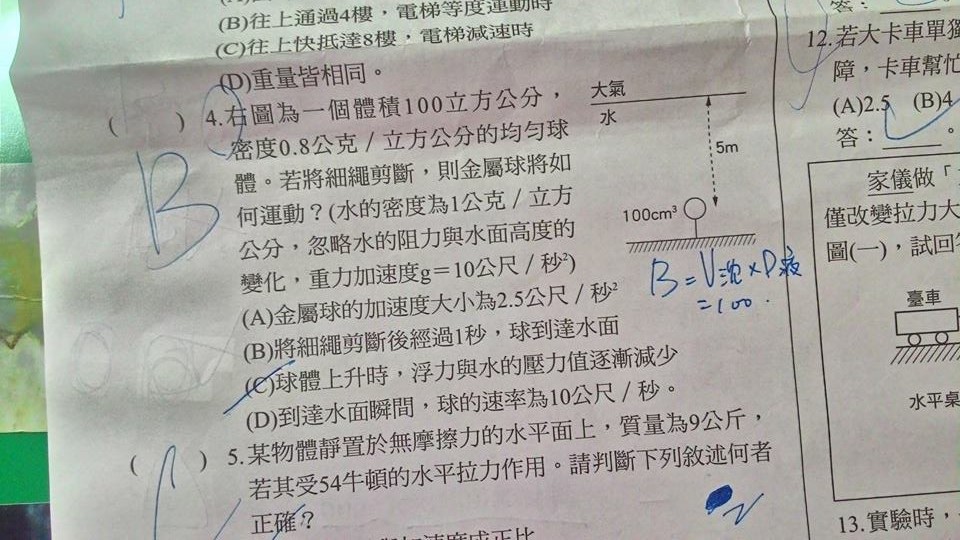 (B)往上通過4樓，電梯等度運動時
(C)往上快抵達8樓，電梯減速時
(D)重量皆相同。
( ) 4.右圖為一個體積100立方公分，
密度0.8公克／立方公分的均勻球
體。若將細繩剪斷，則金屬球將如
何運動？(水的密度為1公克／立方
公分，忽略水的阻力與水面高度的
變化，重力加速度g＝10公尺／秒²)
(A)金屬球的加速度大小為2.5公尺／秒²
(B)將細繩剪斷後經過1秒，球到達水面
(C)球體上升時，浮力與水的壓力值逐漸減少
(D)到達水面瞬間，球的速率為10公尺／秒。
B
大氣
水
5m
100cm³
B=V沈×D液
=100.
( ) 5.某物體靜置於無摩擦力的水平面上，質量為9公斤，
若其受54牛頓的水平拉力作用。請判斷下列敘述何者
正確？
與加速度成正比
答：
12.若大卡車單獨
障，卡車幫忙
(A)2.5 (B)4
答： 。
家儀做「
僅改變拉力大
圖(一)，試回答
臺車
水平桌
13.實驗時，